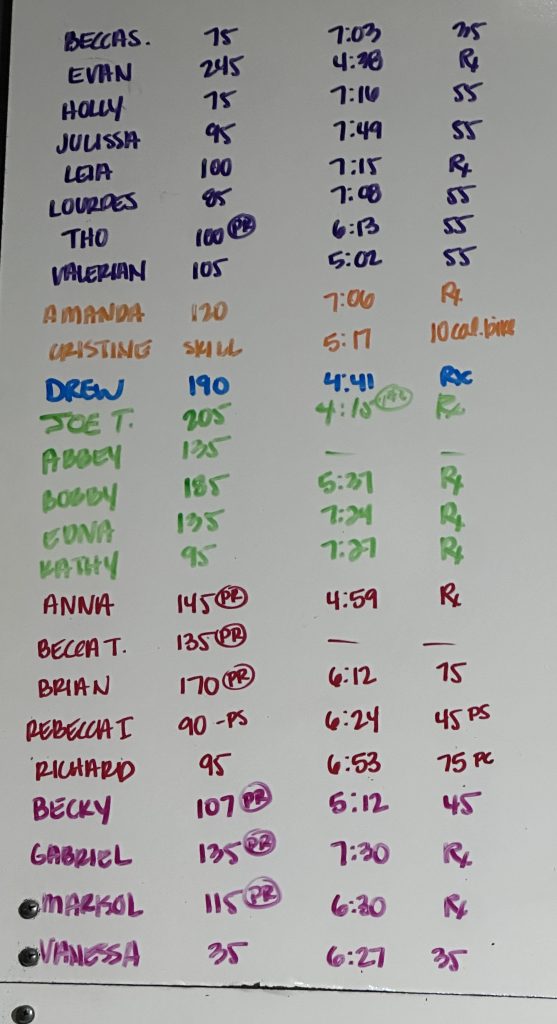 BECCA S. 75 7:03 35
EVAN 245 4:38 Rx
HOLLY 75 7:16 55
JULISSA 95 7:49 55
LEIA 100 7:15 Rx
LOURDES 85 7:08 55
THO 100 PR 6:13 55
VALERIAN 105 5:02 55
AMANDA 120 7:06 Rx
CRISTINE SKILL 5:17 10 cal. bike
DREW 190 4:41 Rx
JOE T. 205 4:15 Rx
ABBEY 135 — —
BOBBY 185 5:37 Rx
EDNA 135 7:24 Rx
KATHY 95 7:27 Rx
ANNA 145 PR 4:59 Rx
BECCA T. 135 PR — —
BRIAN 170 PR 6:12 75
REBECCA I 90 -PS 6:24 45 PS
RICHARD 95 6:53 75 PC
BECKY 107 PR 5:12 45
GABRIEL 135 PR 7:30 Rx
MARISOL 115 PR 6:30 Rx
VANESSA 35 6:27 35